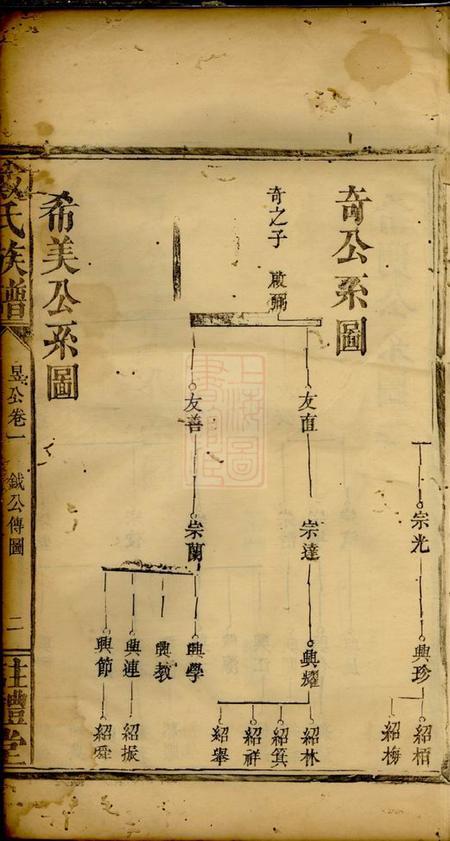 宗光
興珍
紹栢
紹梅
奇公系圖
奇之子 啟弼
友直
崇達
興耀
紹林
紹箕
紹祥
紹舉
友善
崇蘭
興學
興教
興連
紹振
興節
紹舜
希美公系圖
氏族譜
昱公卷一 鉞公傳圖 二
禮堂
上海圖書館藏